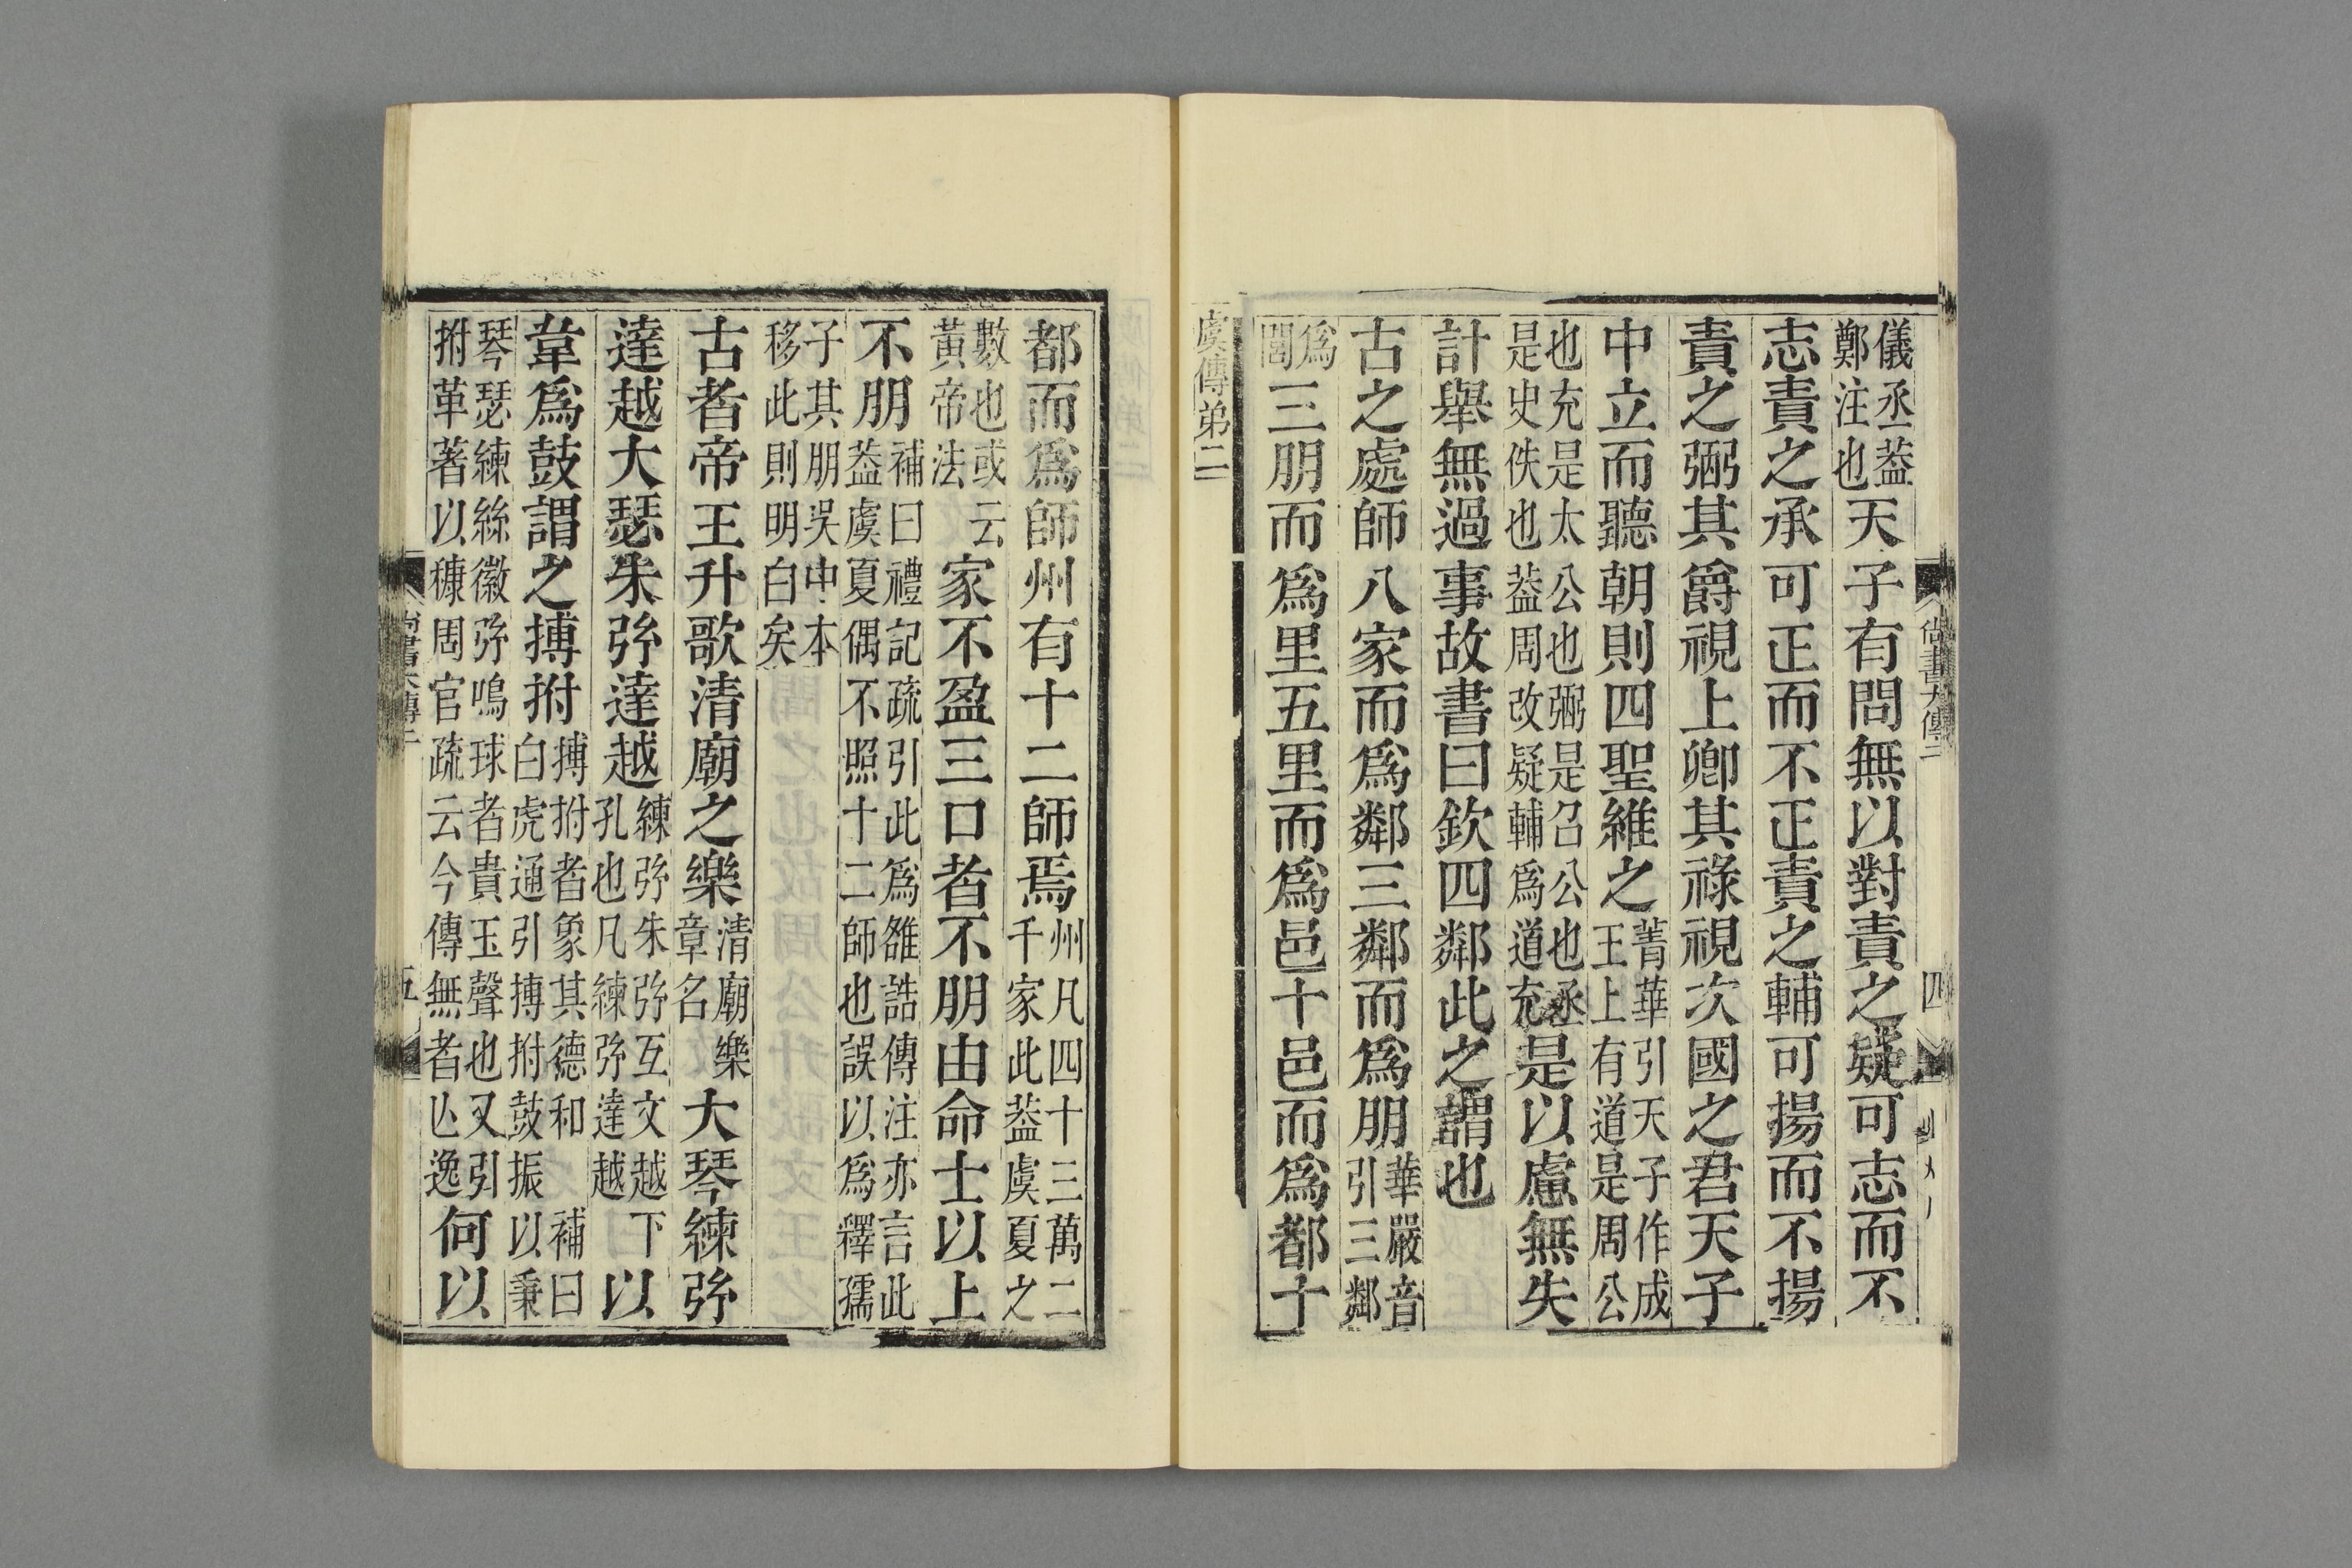 儀丞葢鄭注也天子有問無以對責之疑可志而不
志責之承可正而不正責之輔可揚而不揚
責之弼其爵視上卿其祿視次國之君天子
中立而聽朝則四聖維之菁華引天子作成王上有道是周公
也充是太公也弼是召公也丞是史佚也葢周改疑輔爲道充是以慮無失
計舉無過事故書曰欽四鄰此之謂也
古之處師八家而爲鄰三鄰而爲朋華嚴音引三鄰
爲閭三朋而爲里五里而爲邑十邑而爲都十
虞傳弟二
尙書大傳二
四
都而爲師州有十二師焉州凡四十三萬二千家此葢虞夏之
數也或云黃帝法家不盈三口者不朋由命士以上
不朋補曰禮記疏引此爲雒誥傳注亦言此葢虞夏偶不照十二師也誤以爲釋孺
子其朋吳中本移此則明白矣
古者帝王升歌清廟之樂清廟樂章名大琴練弦
達越大瑟朱弦達越練弦朱弦互文越下孔也凡練弦達越以
韋爲鼓謂之搏拊搏拊者象其德和補曰白虎通引搏拊鼓振以秉
琴瑟練絲徽弦鳴球者貴玉聲也又引拊革著以穅周官疏云今傳無者亾逸何以
尙書大傳二
五